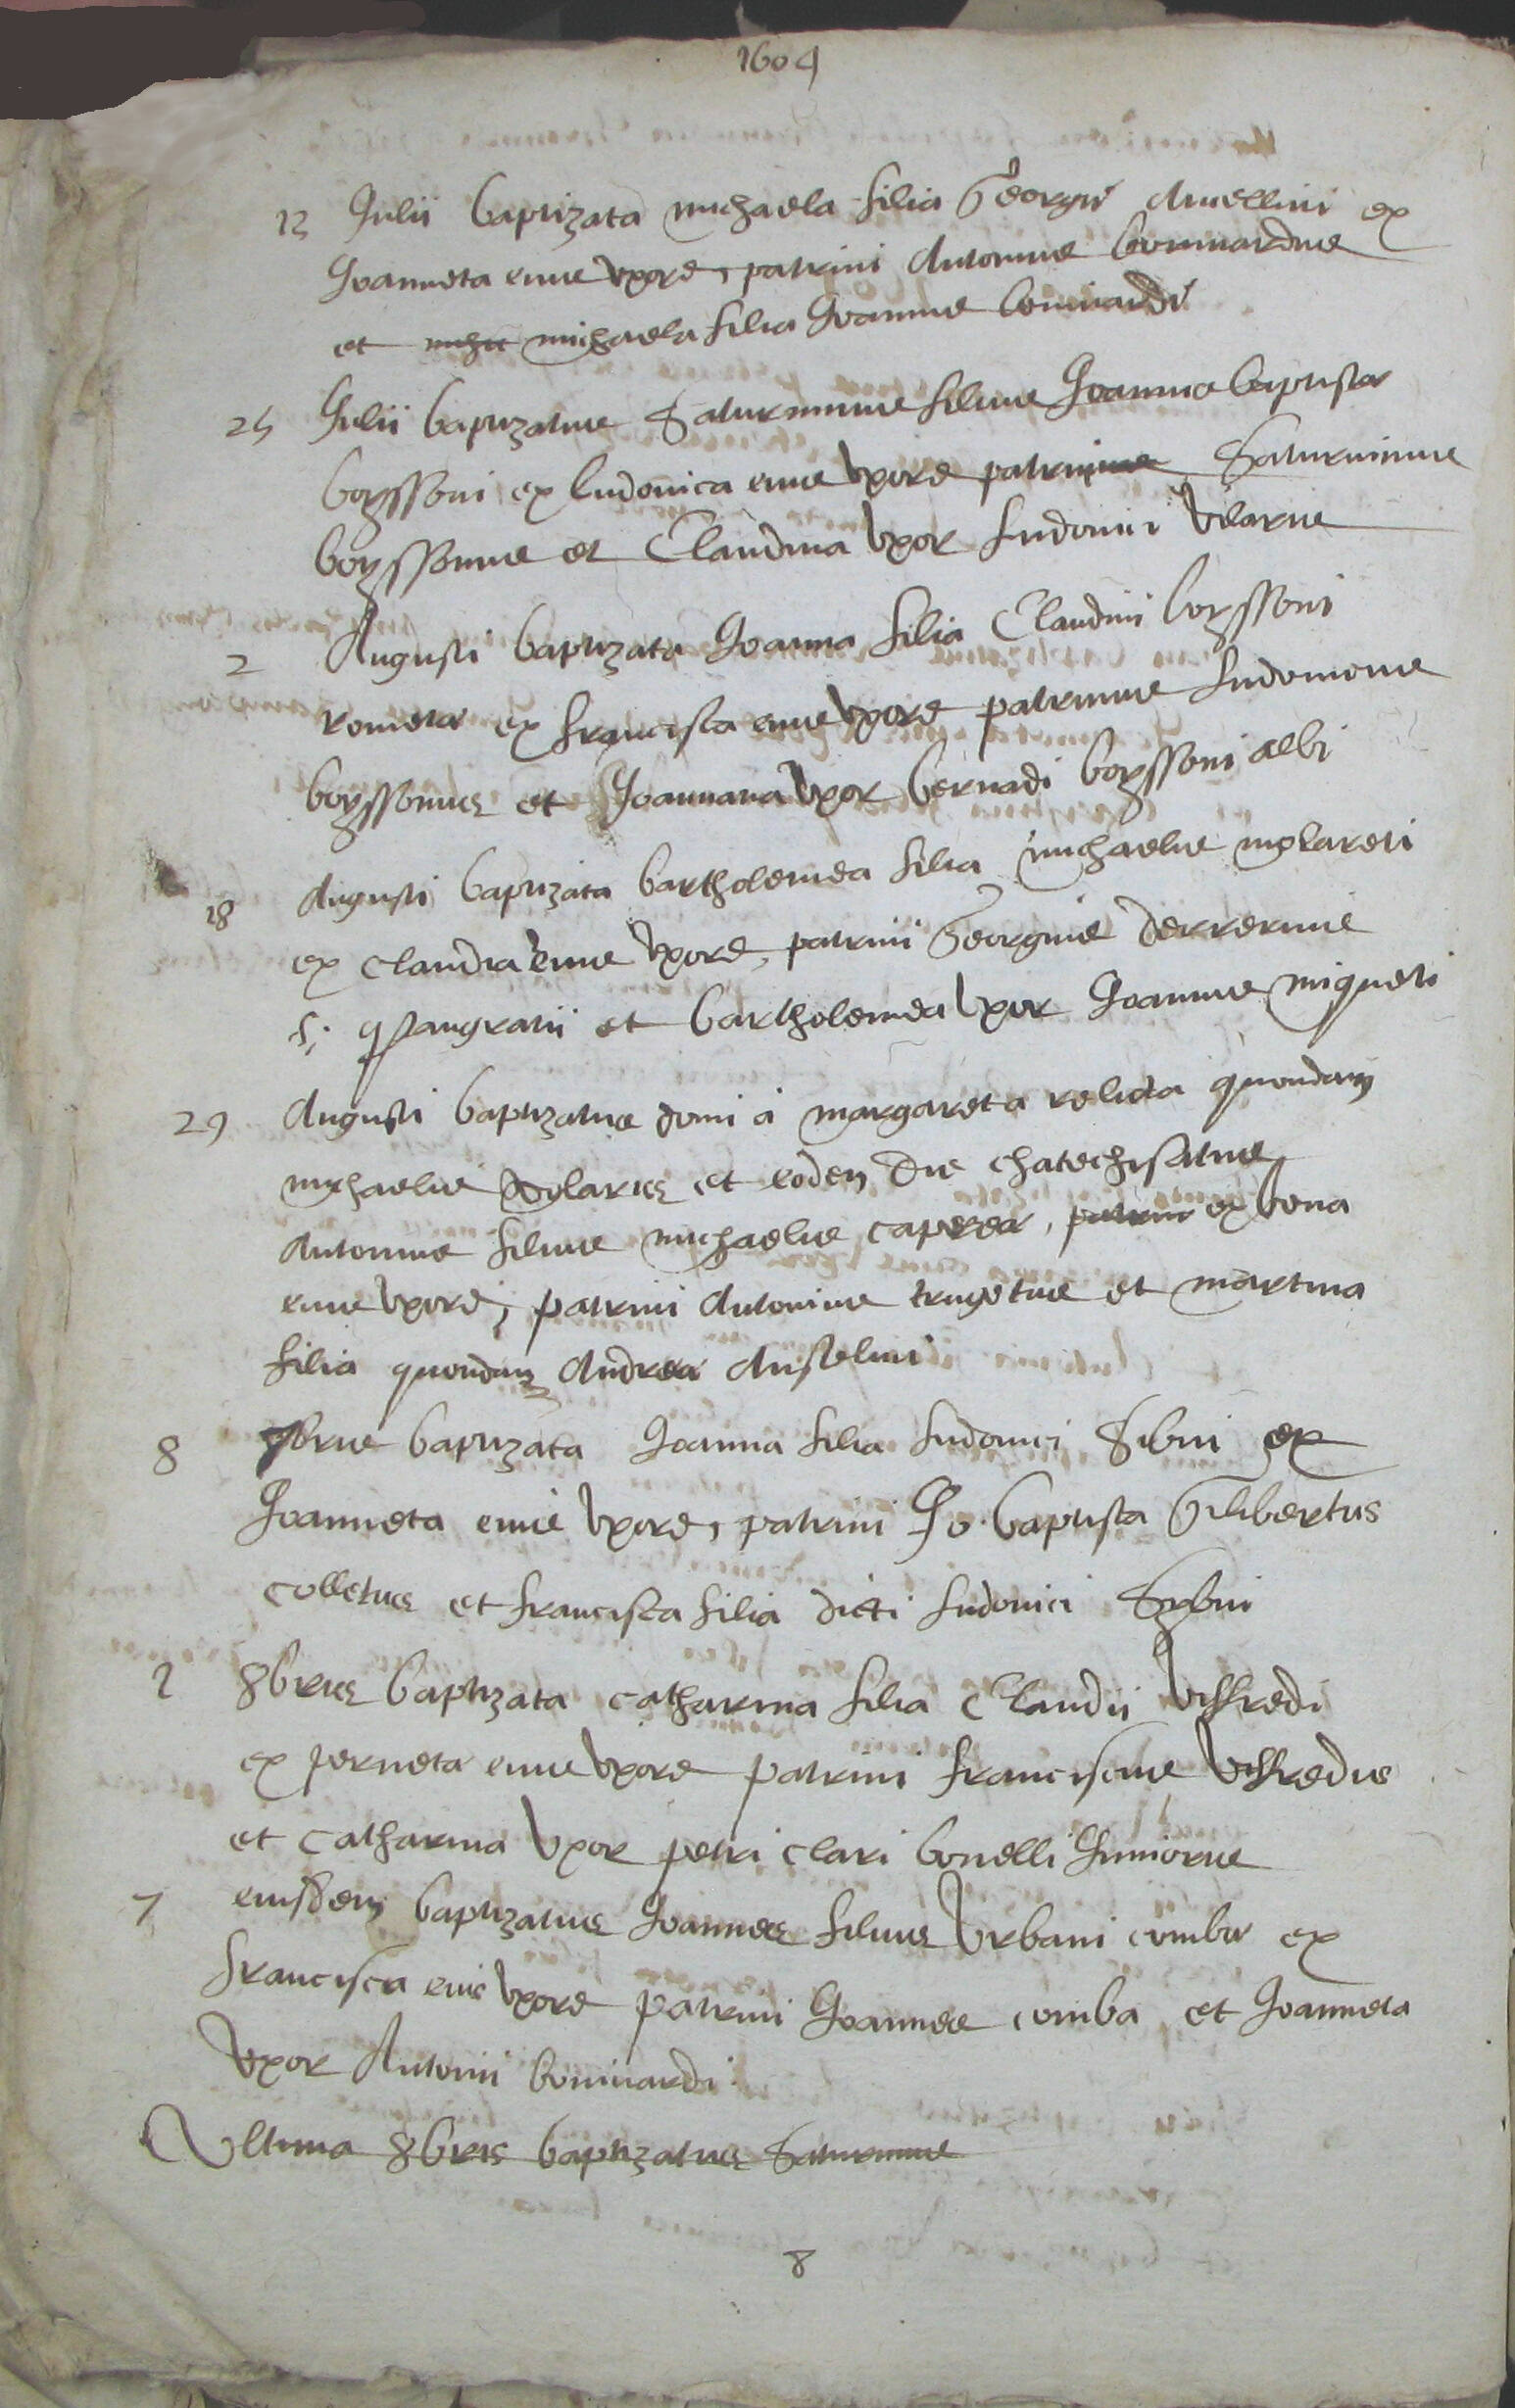 1604
13 Julii baptizata michaela filia Georgii Ansellini ex
Joanneta eius uxore, patrini Antonius bonivardus
et michaela filia Joannis bonivardi
25 Julii baptizatus Saturninus filius Joannis baptistæ
boyssoni ex ludovica eius uxore patrini Saturninus
boyssonus et Claudina uxor Ludovici Vilaris
2 Augusti baptizata Joanna filia Claudini boyssoni
rometæ ex francisca eius uxore patrinus Ludovicus
boyssonus et Joannana uxor bernadi boyssoni albi
18 Augusti baptizata bartholemea filia michaelis molareti
ex claudia eius uxore, patrini Georgius
q pangratii et bartholemea uxor Joannis miqueti
29 Augusti baptizatus domi a margareta relicta quondam
michaelis et eodem die chatechisatus
Antonius filius michaelis patrini ex bona
eius uxore, patrini Antonius et martina
filia quondam Andreæ Anselmi
8 7bris baptizata Joanna filia Ludovici Sibui ex
Joanneta eius uxore, patrini Jo. baptista Gilibertus
colletus et francisca filia dicti Ludovici Sybui
1 8bris baptizata catharina filia Claudii Viffredi
ex perneta eius uxore patrini franciscus Viffredus
et catharina uxor petri clari bonelli Junioris
7 eiusdem baptizatus Joannes filius Urbani combæ ex
francisca eius uxore patrini Joannes comba et Joanneta
uxor Antonii bonivardi
Ultima 8bris baptizatus Saturninus
8